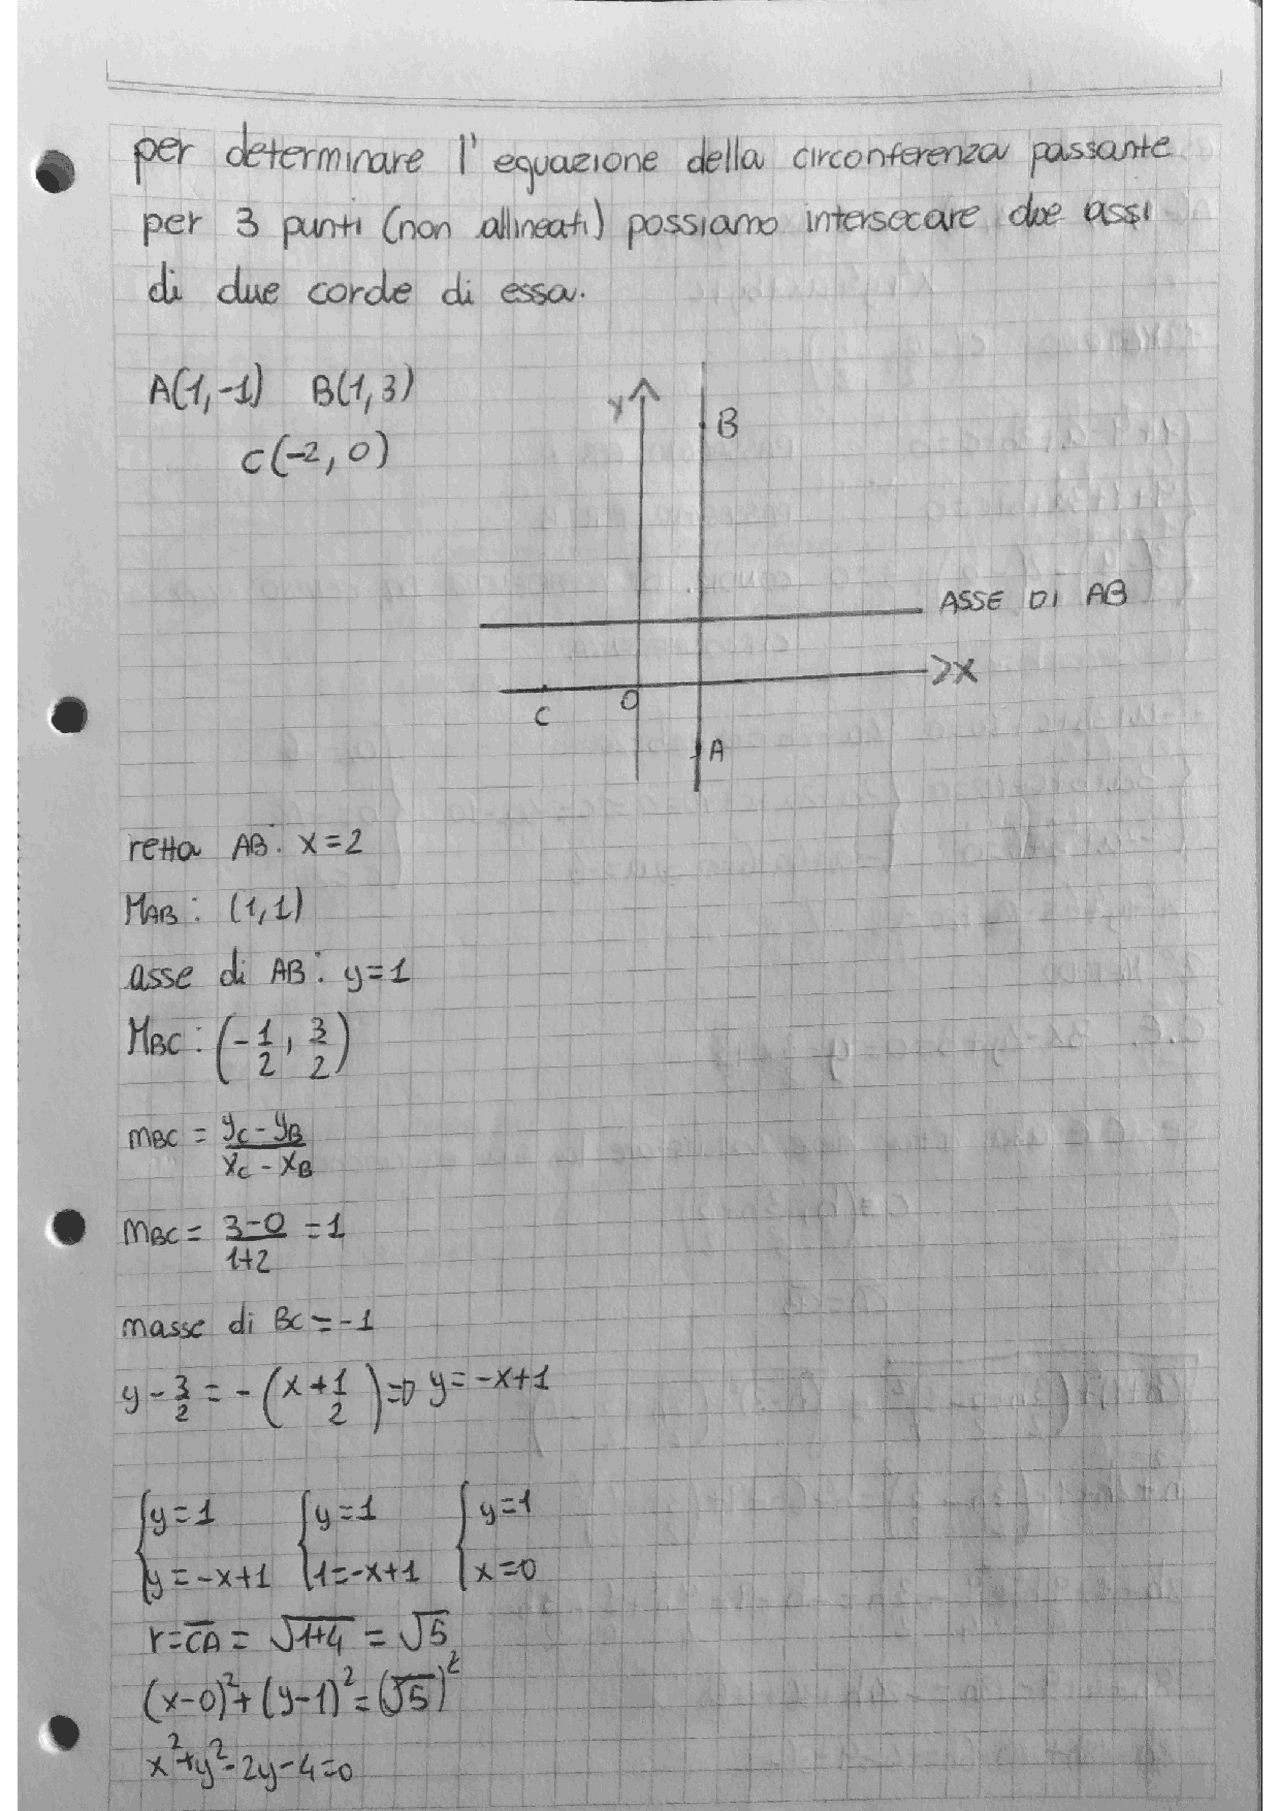 per determinare l'equazione della circonferenza passante
per 3 punti (non allineati) possiamo intersecare due assi
di due corde di essa.
A(1,-1) B(1,3)
C(-2,0)
y
B
ASSE DI AB
x
O
C
A
retta AB: x=2
MAB: (1,1)
asse di AB: y=1
MBC: (-1/2, 3/2)
mBC = yC-yB/xC-xB
mBC = 3-0/1+2 = 1
masse di BC = -1
y - 3/2 = -(x + 1/2) => y = -x+1
{y=1 {y=1 {y=1
{y=-x+1 {1=-x+1 {x=0
r = CA = √1+4 = √5
(x-0)²+(y-1)²=(√5)²
x²+y²-2y-4=0